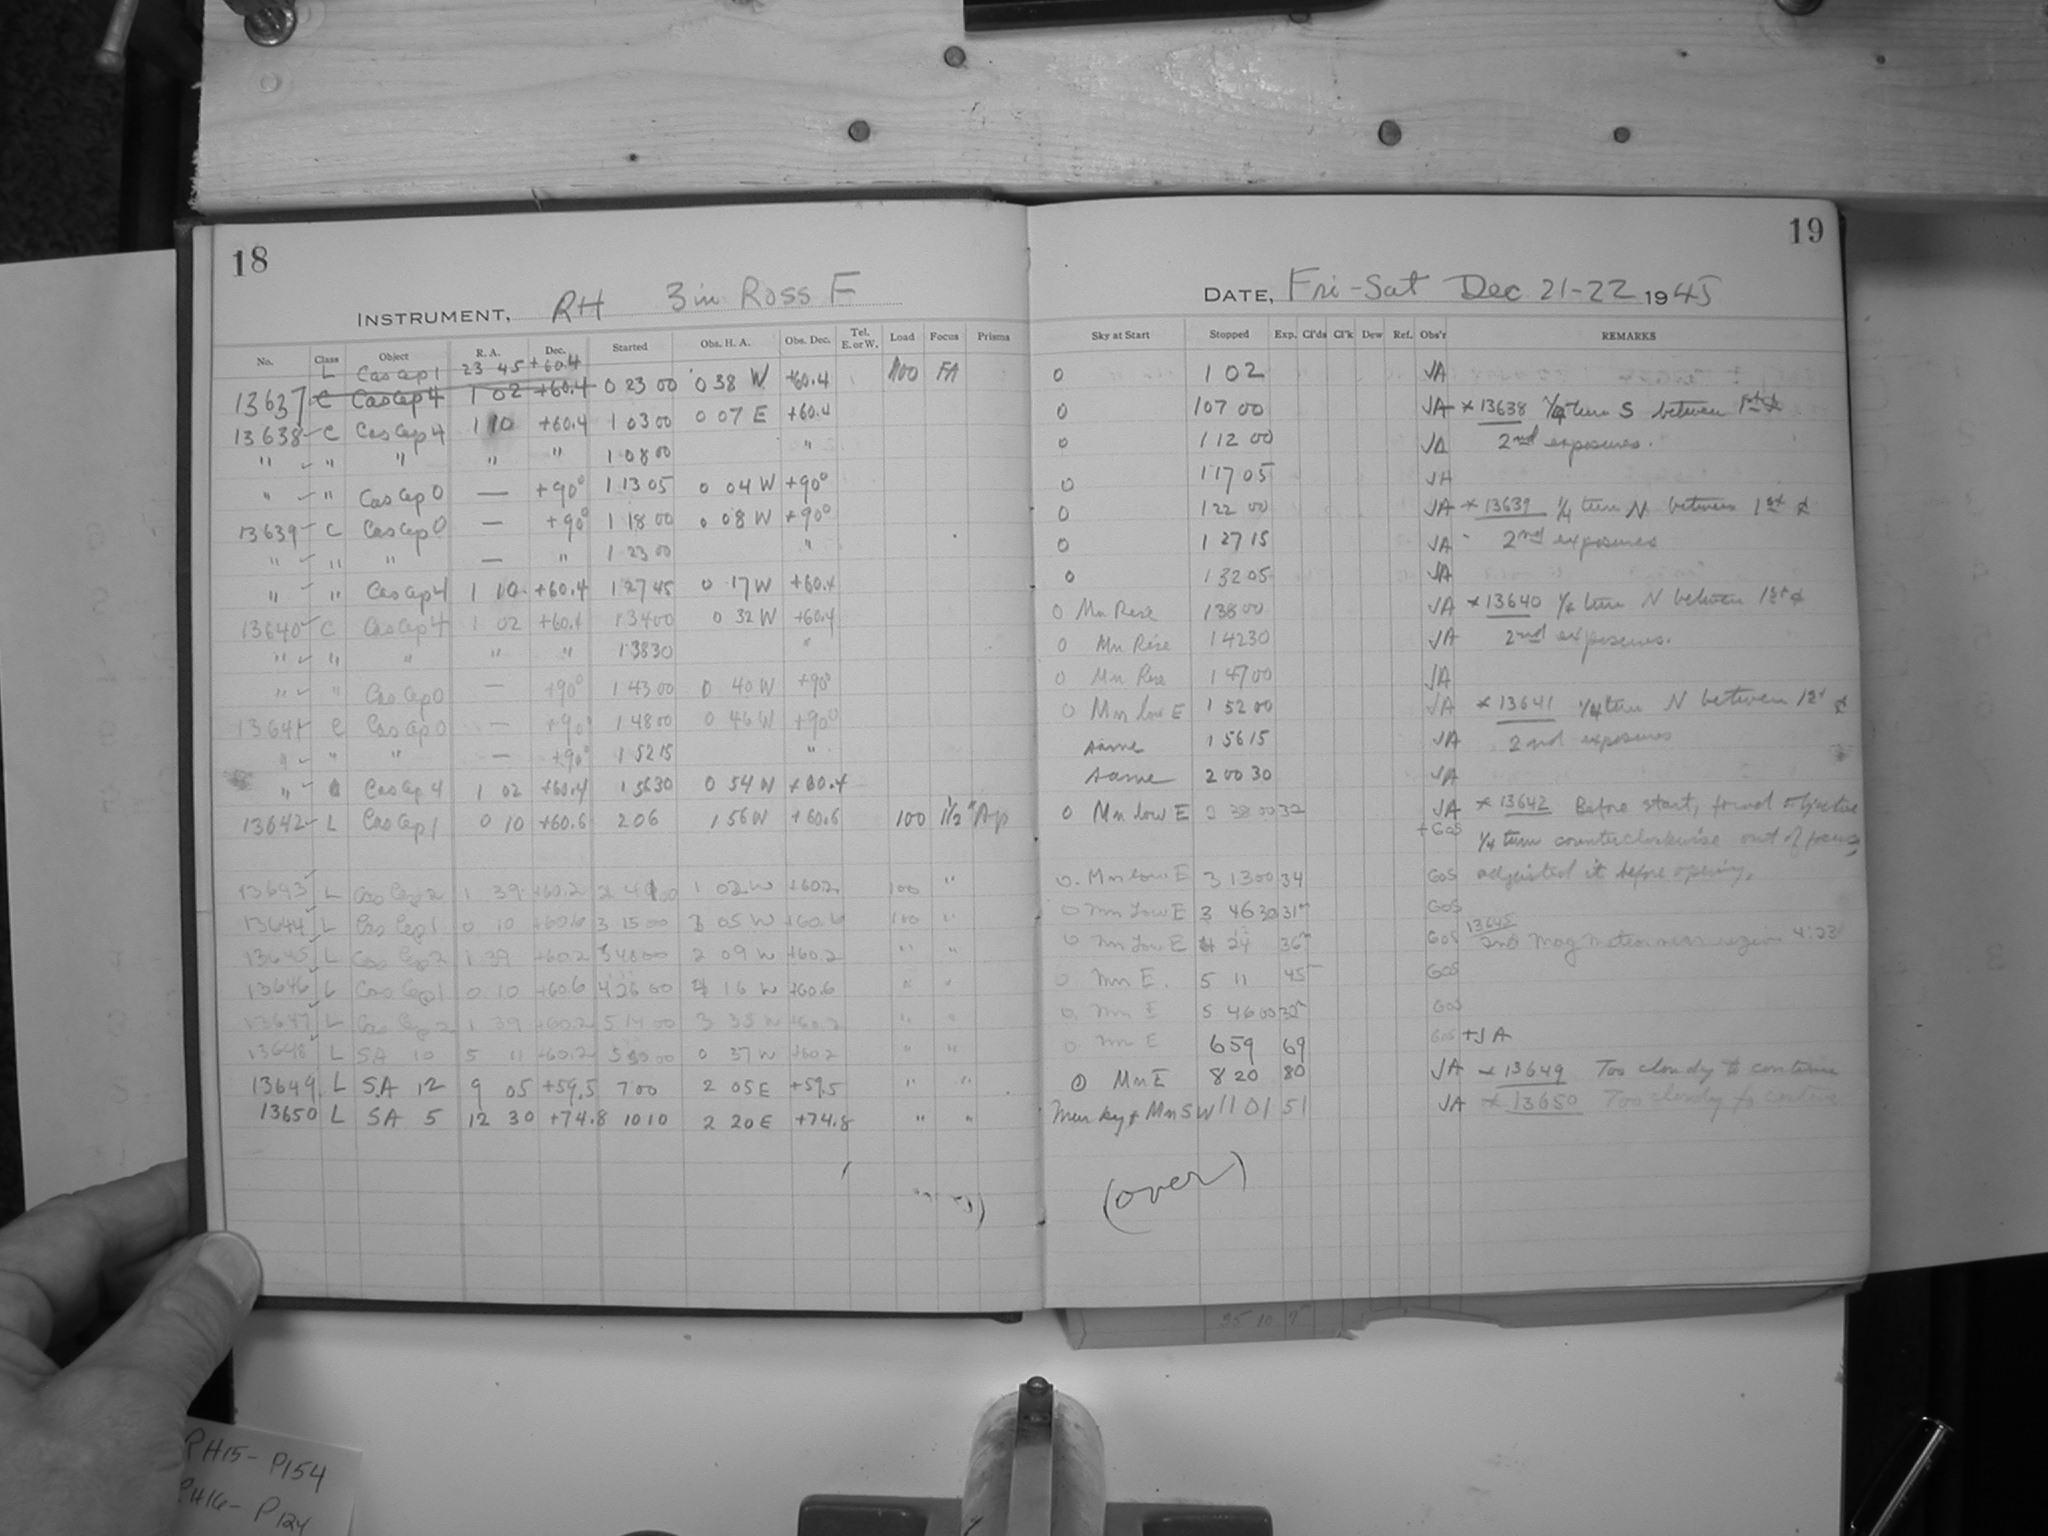 18
INSTRUMENT, RH 3in Ross F
No. Class Object R. A. Dec. Started Obs. H. A. Obs. Dec. Tel. E. or W. Load Focus Prisms
L Cas Cep 1 23 45 +60.4
13637 C Cas Cep 4 1 02 +60.4 0 23 00 0 38 W +60.4 100 FA
13638 C Cas Cep 4 1 10 +60.4 1 03 00 0 07 E +60.4
" " " " " 1 08 00 "
" " Cas Cep 0 — +90° 1 13 05 0 04 W +90°
13639 C Cas Cep 0 — +90° 1 18 00 0 08 W +90°
" " " — " 1 23 00 "
" " Cas Cep 4 1 10 +60.4 1 27 45 0 17 W +60.4
13640 C Cas Cep 4 1 02 +60.4 1 34 00 0 32 W +60.4
" " " " " 1 38 30 "
" " Cas Cep 0 — +90° 1 43 00 0 40 W +90°
13641 C Cas Cep 0 — +90° 1 48 00 0 46 W +90°
" " " — +90° 1 52 15 "
" Cas Cep 4 1 02 +60.4 1 56 30 0 54 W +60.4
13642 L Cas Cep 1 0 10 +60.6 2 06 1 56 W +60.6 100 1½" Ap
13643 L Cas Cep 2 1 39 +60.2 1 02 W +60.2 100 "
13644 L Cas Cep 1 0 10 +60.6 3 15 00 3 05 W +60.6 100 "
13645 L Cas Cep 2 1 39 +60.2 3 48 00 2 09 W +60.2 " "
13646 L Cas Cep 1 0 10 +60.6 4 26 00 4 16 W +60.6 " "
13647 L Cas Cep 2 1 39 +60.2 5 14 00 3 35 W +60.2 " "
13648 L SA 10 5 11 +60.2 0 37 W +60.2 " "
13649 L SA 12 9 05 +59.5 7 00 2 05 E +59.5 " "
13650 L SA 5 12 30 +74.8 10 10 2 20 E +74.8 " "
19
DATE, Fri-Sat Dec 21-22 1945
Sky at Start Stopped Exp. Cl'ds Cl'k Dew Ref. Obs'r REMARKS
0 1 02 JA
0 1 07 00 JA * 13638 ¼ turn S between 1st &
0 1 12 00 JA 2nd exposures.
0 1 17 05 JA
0 1 22 00 JA * 13639 ¼ turn N between 1st &
0 1 27 15 JA 2nd exposures
0 1 32 05 JA
0 Mn Rise 1 38 00 JA * 13640 ¼ turn N between 1st &
0 Mn Rise 1 42 30 JA 2nd exposures.
0 Mn Rise 1 47 00 JA
0 Mn low E 1 52 00 JA * 13641 ¼ turn N between 1st &
same 1 56 15 JA 2nd exposures
same 2 00 30 JA
0 Mn low E 2 38 00 32 JA * 13642 Before start, found objective
+ GoS ¼ turn counterclockwise out of focus,
0. Mn low E 3 13 00 34 GoS adjusted it before opening.
0 Mn Low E 3 46 30 31m GoS
0 Mn Low E 4 24 36m GoS 13645 2nd Mag meteor near region 4:23
0 Mn E. 5 11 45 GoS
0. Mn E 5 46 00 32m GoS
0. Mn E 6 59 69 GoS + JA
Mn E 8 20 80 JA * 13649 Too cloudy to continue
Murky & Mn SW 11 01 51 JA * 13650 Too cloudy to continue
(over)
PH15- P154
PH16- P124